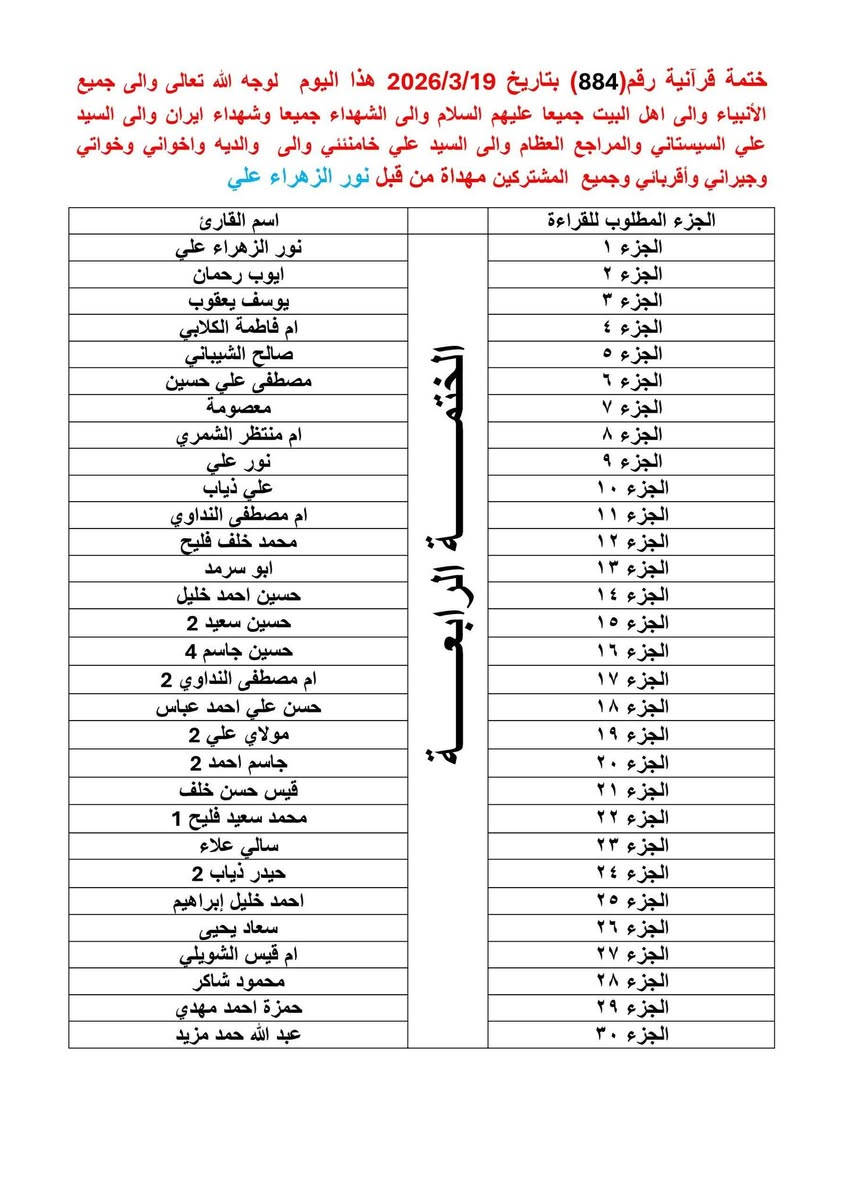 ختمة قرآنية رقم(884) بتاريخ 2026/3/19 هذا اليوم لوجه الله تعالى والى جميع
الأنبياء والى اهل البيت جميعا عليهم السلام والى الشهداء جميعا وشهداء ايران والى السيد
علي السيستاني والمراجع العظام والى السيد علي خامنئني والى والديه واخواني وخواتي
وجيراني وأقربائي وجميع المشتركين مهداة من قبل نور الزهراء علي
الجزء المطلوب للقراءة اسم القارئ
الجزء ١ نور الزهراء علي
الجزء ٢ ايوب رحمان
الجزء ٣ يوسف يعقوب
الجزء ٤ ام فاطمة الكلابي
الجزء ٥ صالح الشيباني
الجزء ٦ مصطفى علي حسين
الجزء ٧ معصومة
الجزء ٨ ام منتظر الشمري
الجزء ٩ نور علي
الجزء ١٠ علي ذياب
الجزء ١١ ام مصطفى النداوي
الجزء ١٢ محمد خلف فليح
الجزء ١٣ ابو سرمد
الجزء ١٤ حسين احمد خليل
الجزء ١٥ حسين سعيد 2
الجزء ١٦ حسين جاسم 4
الجزء ١٧ ام مصطفى النداوي 2
الجزء ١٨ حسن علي احمد عباس
الجزء ١٩ مولاي علي 2
الجزء ٢٠ جاسم احمد 2
الجزء ٢١ قيس حسن خلف
الجزء ٢٢ محمد سعيد فليح 1
الجزء ٢٣ سالي علاء
الجزء ٢٤ حيدر ذياب 2
الجزء ٢٥ احمد خليل إبراهيم
الجزء ٢٦ سعاد يحيى
الجزء ٢٧ ام قيس الشويلي
الجزء ٢٨ محمود شاكر
الجزء ٢٩ حمزة احمد مهدي
الجزء ٣٠ عبد الله حمد مزيد
الختمـــــة الرابعـــــة